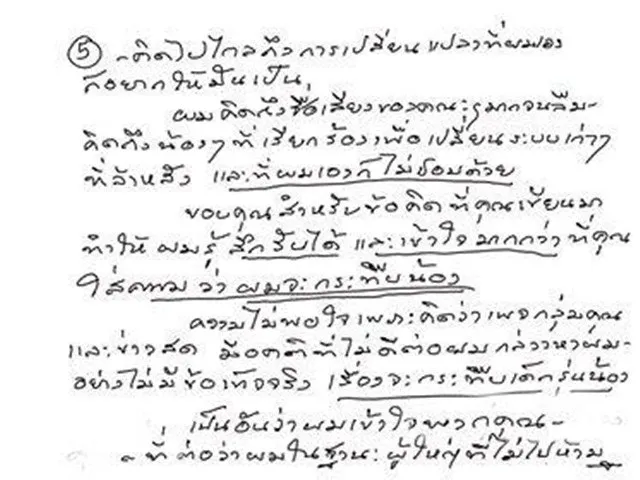 ⑤ -คิดไปไกลถึงการเปลี่ยนแปลงที่ผมเอง
ก็อยากให้มันเป็น
ผมคิดถึงชื่อเสียงของคณะฯมากจนลืม-
คิดถึงน้องๆที่เรียกร้องเพื่อเปลี่ยนระบบเก่าๆ
ที่ล้าหลัง และที่ผมเองก็ไม่ชอบด้วย
ขอบคุณสำหรับข้อคิดที่คุณเขียนมา
ทำให้ผมรู้สึกรับได้ และเข้าใจมากกว่าที่คุณ
ใส่ความว่าผมจะกระทืบน้อง
ความไม่พอใจเพราะคิดว่าเพจกลุ่มคุณ
และข่าวสด มีอคติที่ไม่ดีต่อผมกล่าวหาผม-
อย่างไม่มีข้อเท็จจริง เรื่องจะกระทืบเด็กรุ่นน้อง
เป็นอันว่าผมเข้าใจพวกคุณ-
-ที่ต่อว่าผมในฐานะผู้ใหญ่ที่ไม่ไปห้าม